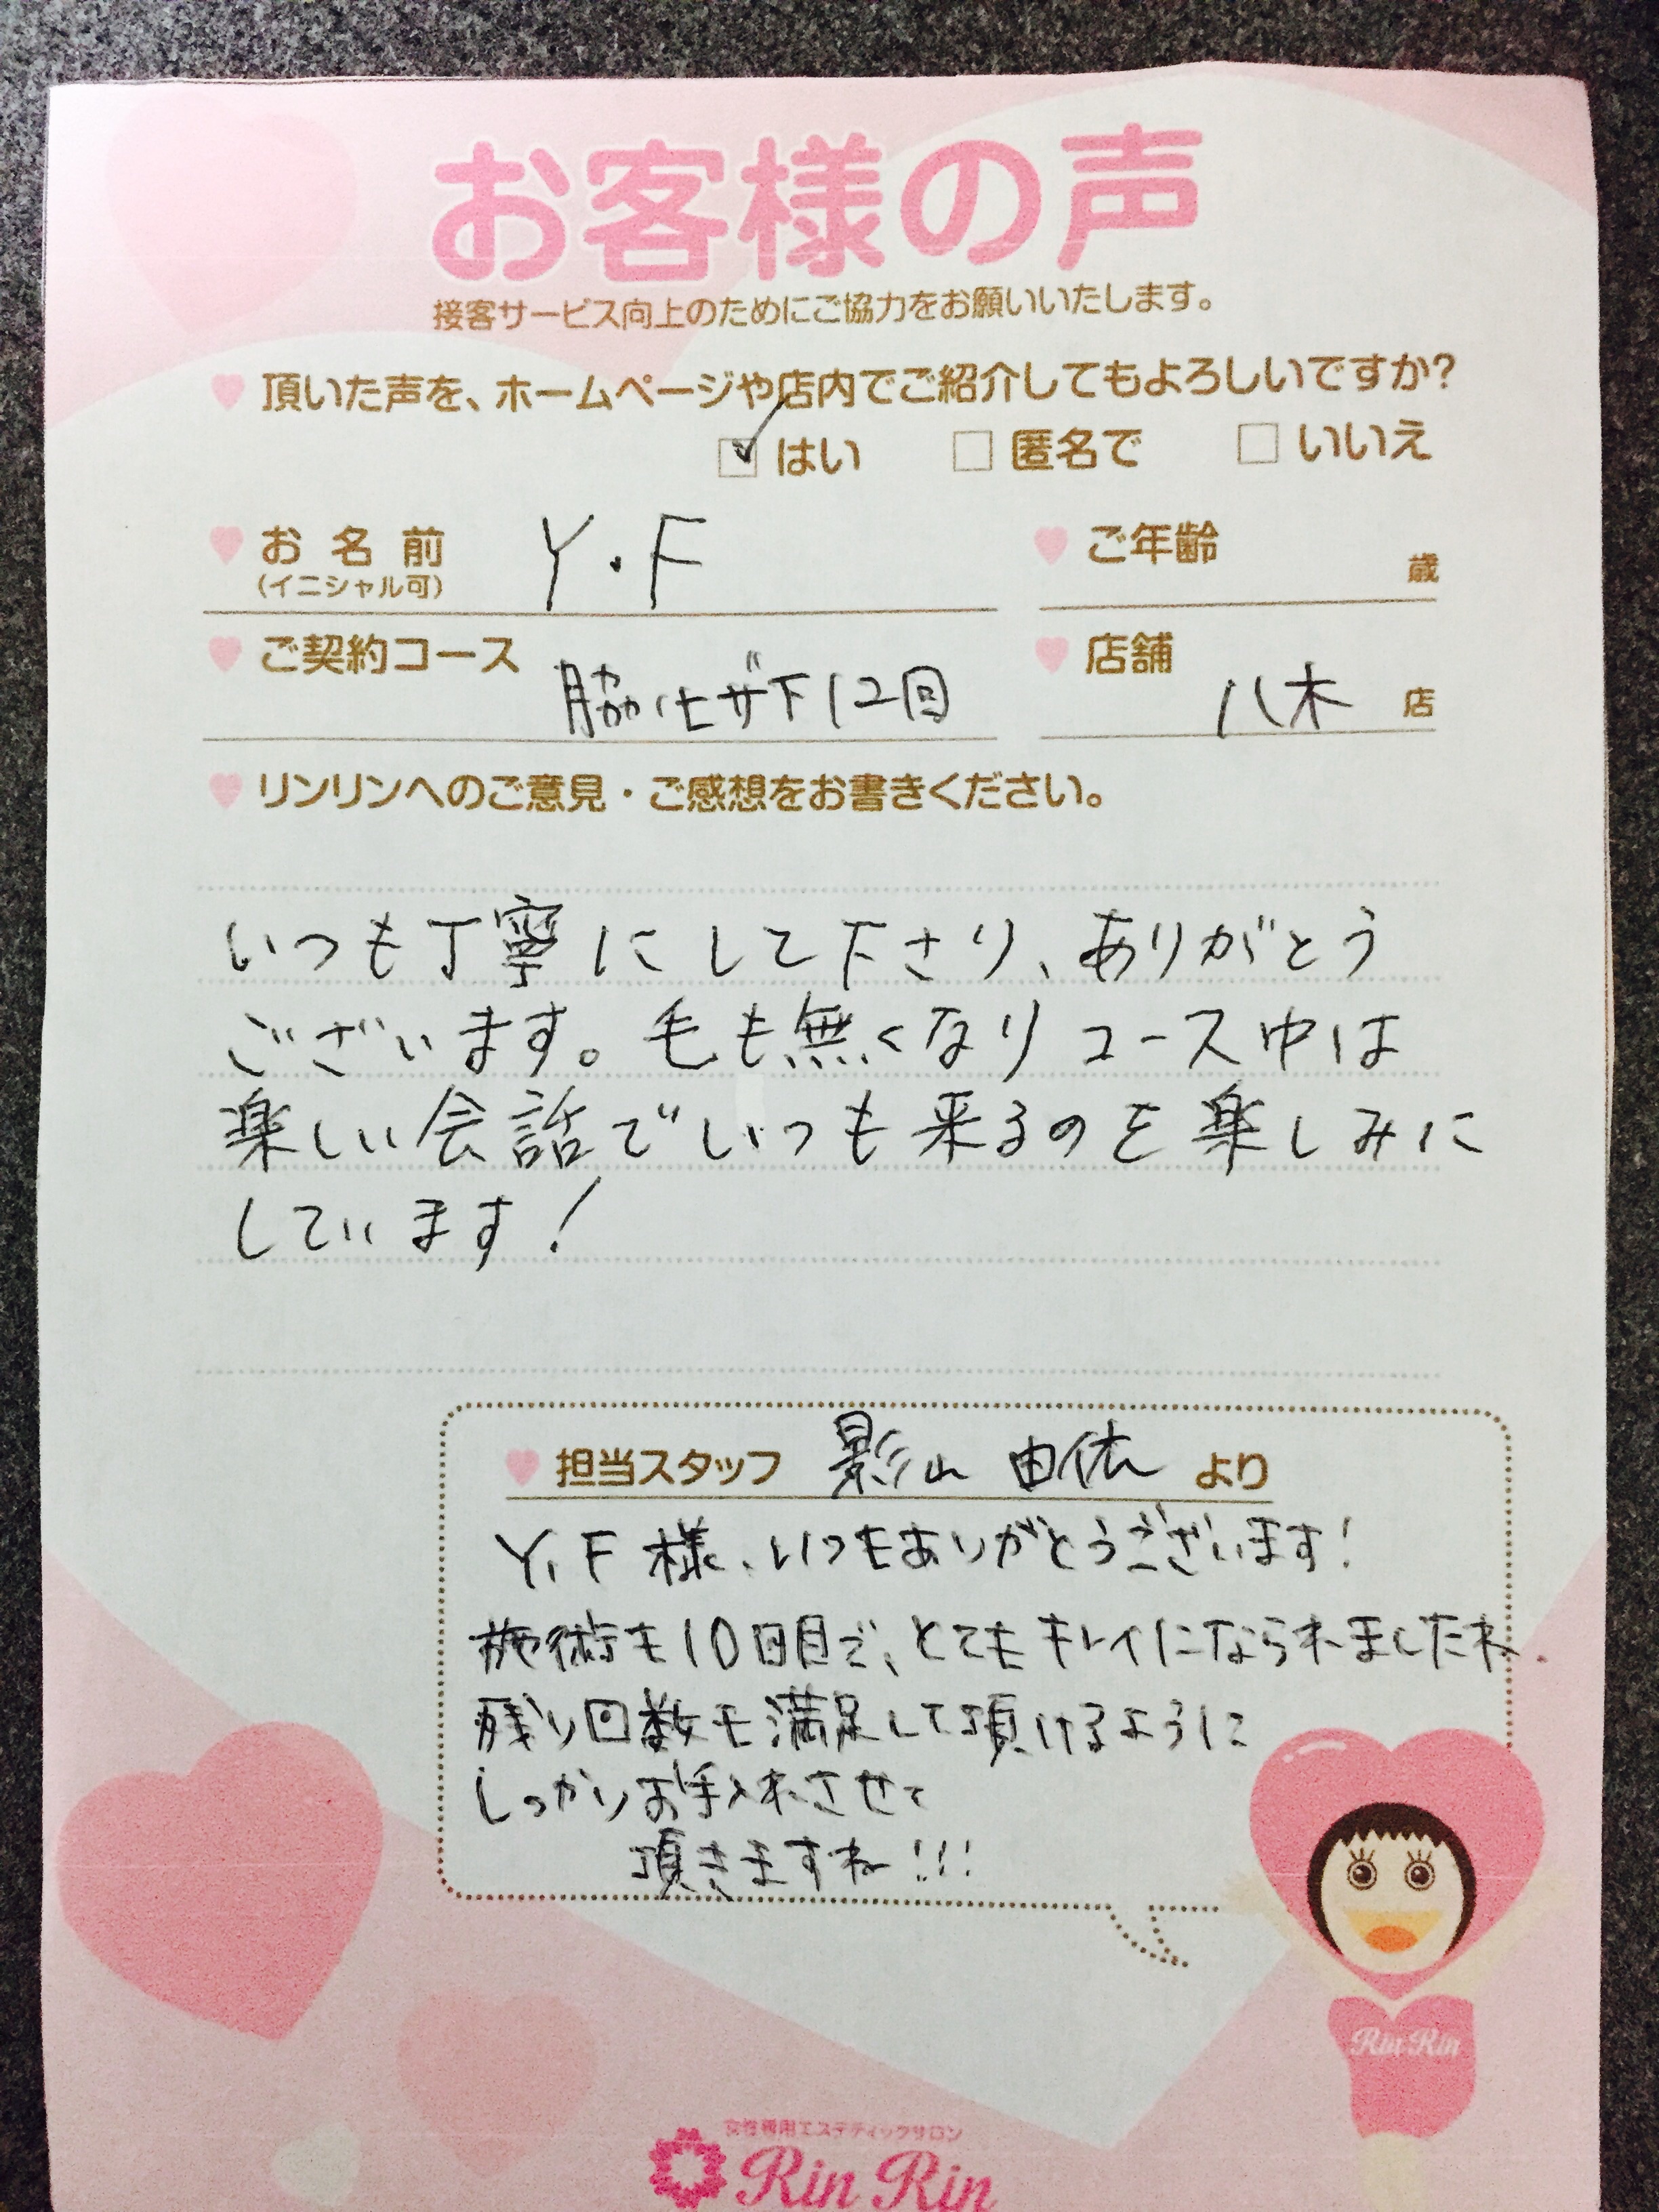 お客様の声
接客サービス向上のためにご協力をお願いいたします。
頂いた声を、ホームページや店内でご紹介してもよろしいですか?
はい 匿名で いいえ
お名前 Y・F ご年齢 歳
(イニシャル可)
ご契約コース 脇ヒザ下12回 店舗 八木 店
リンリンへのご意見・ご感想をお書きください。
いつも丁寧にして下さり、ありがとう
ございます。毛も無くなりコース中は
楽しい会話でいつも来るのを楽しみに
しています!
担当スタッフ 影山 由依 より
Y.F 様、いつもありがとうございます!
施術も10回目で、とてもキレイになられましたね。
残り回数も満足して頂けるように
しっかりお手入れさせて
頂きますね!!!
Rin Rin
女性専用エステティックサロン
Rin Rin